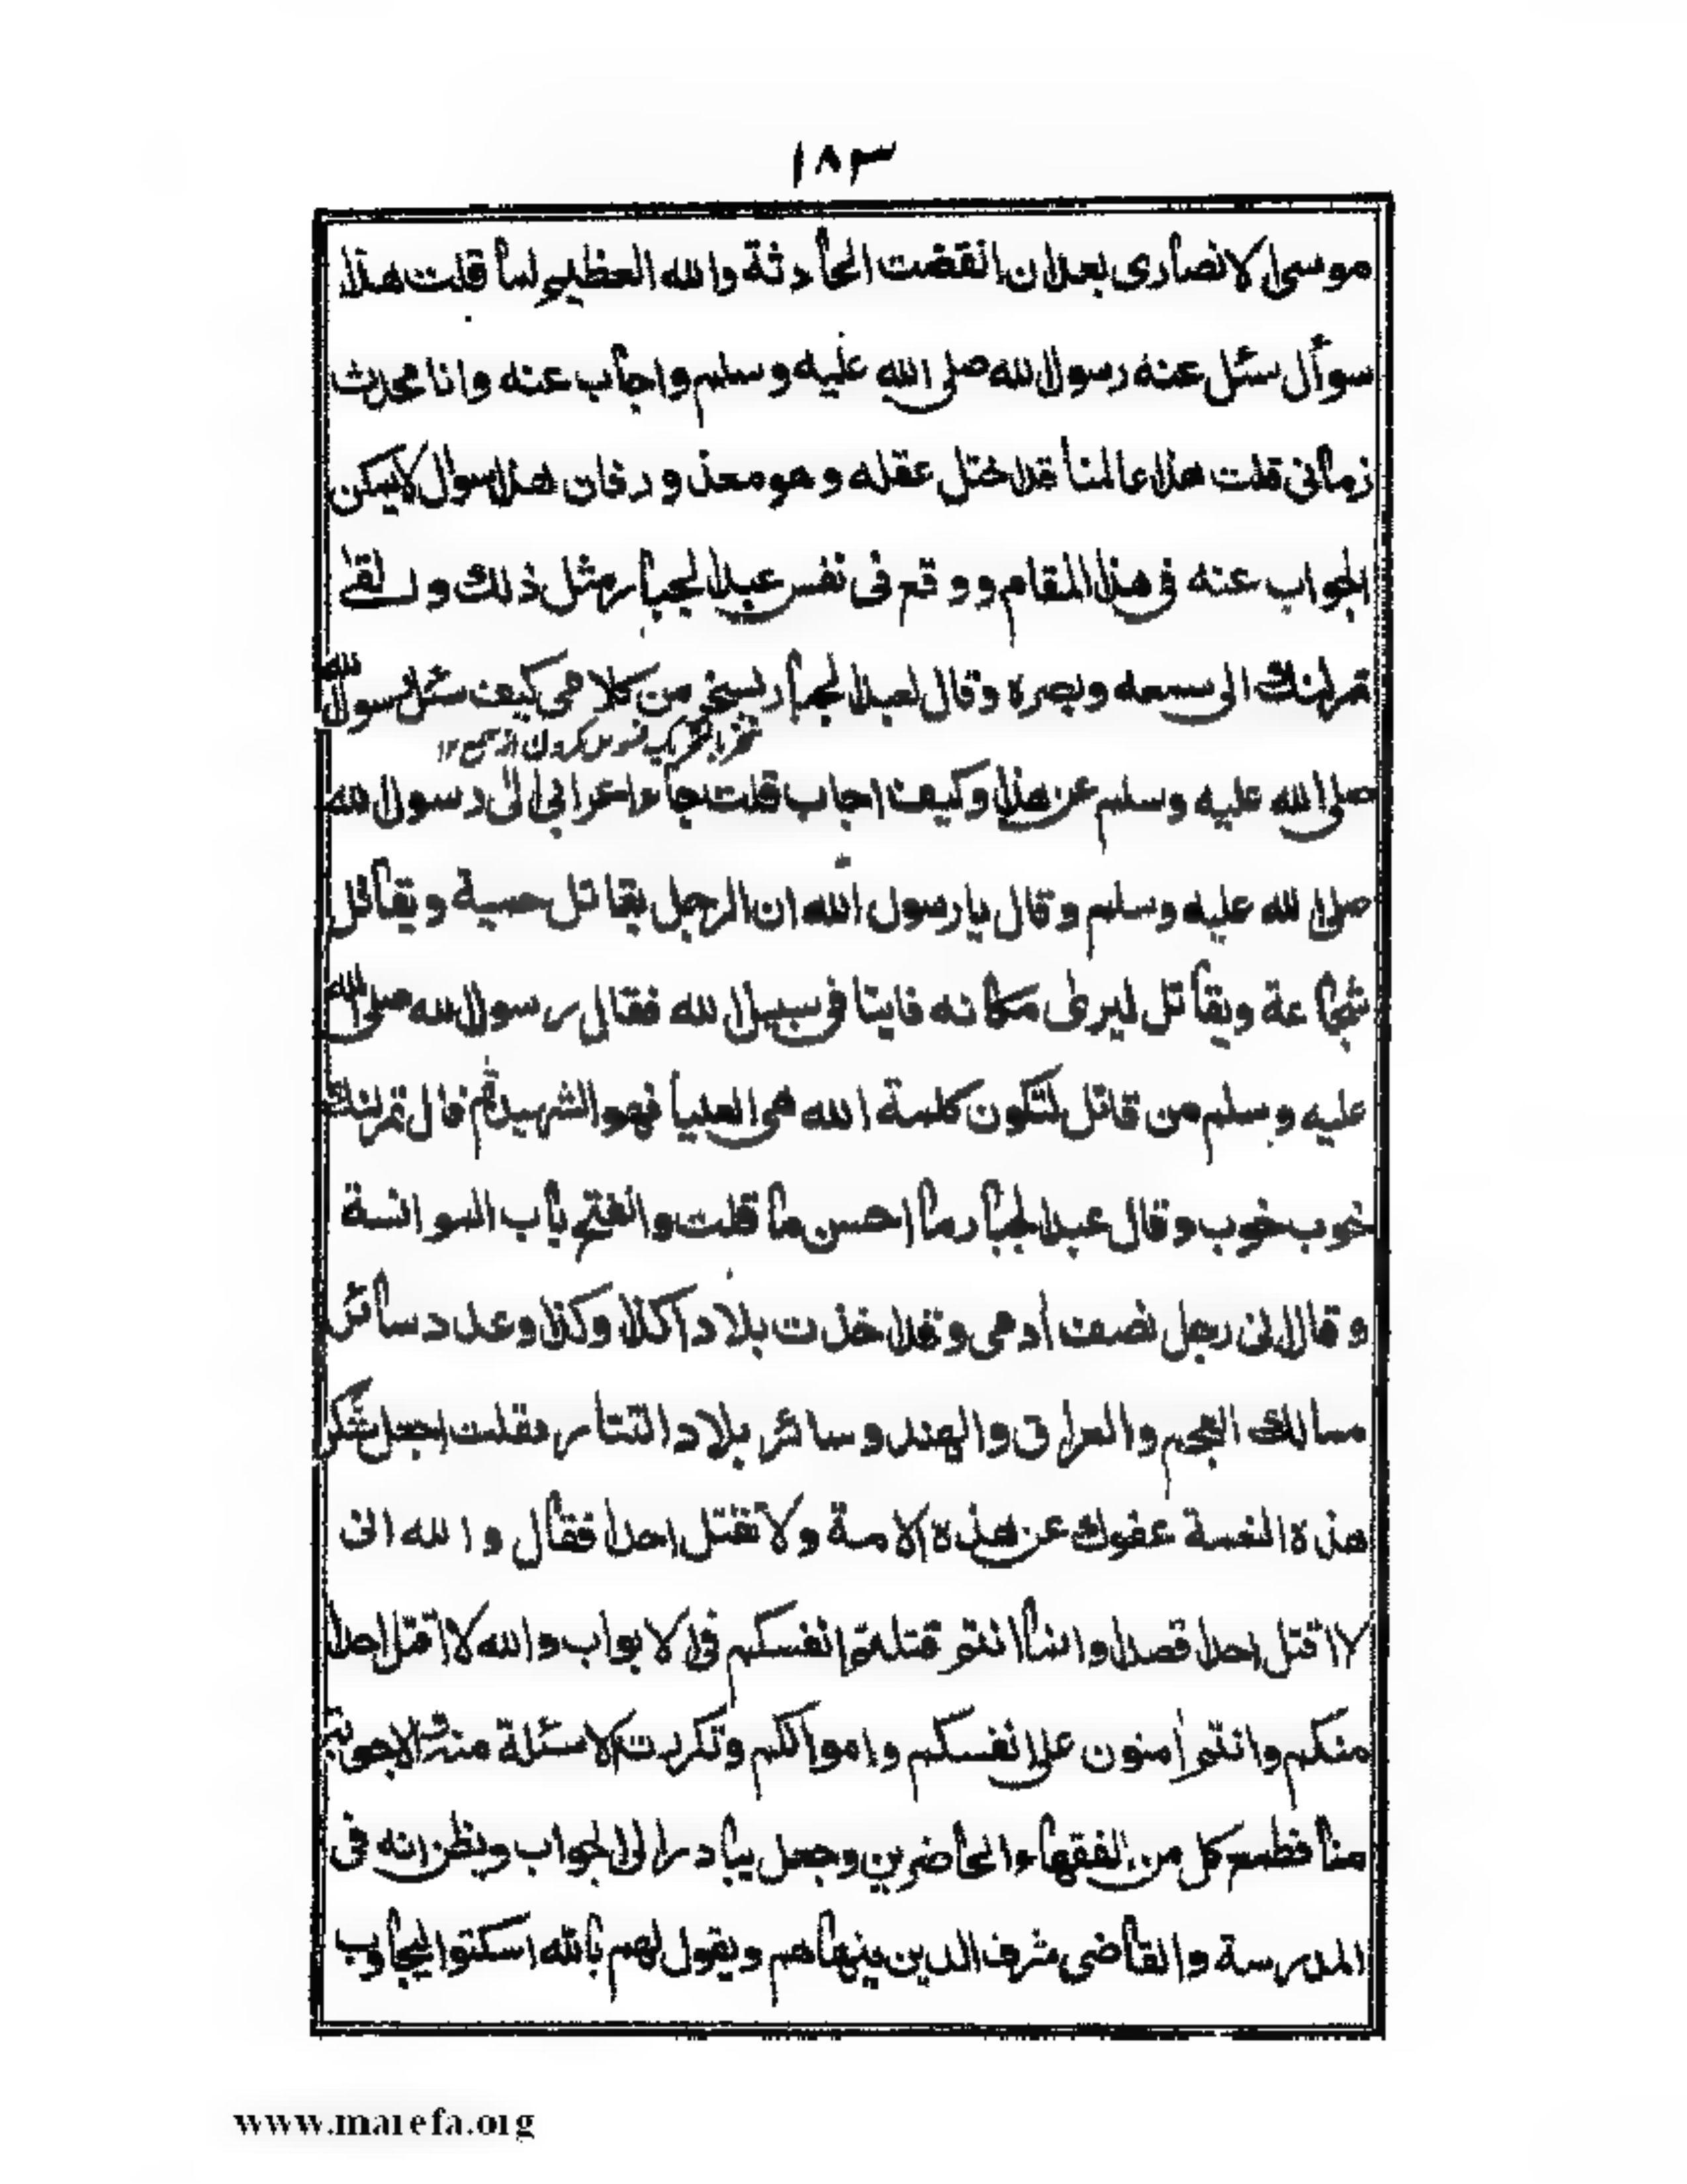 ١٨٣
موسى الانصارى بعد ان انقضت الحادثة والله العظيم لما قلت هذا
سوأل سئل عنه رسول الله صلى الله عليه وسلم واجاب عنه وانا محدث
زمانى قلت هذا عالمنا قد اختل عقله وهو معذور فان هذا سوال لا يمكن
الجواب عنه فى هذا المقام ووقع فى نفس عبد الجبار مثل ذلك والقى
تمرلنك الى سمعه وبصره وقال لعبد الجبار يسخر من كلامى كيف سئل رسول الله
صلى الله عليه وسلم عن هذا وكيف اجاب قلت جاء اعرابى الى رسول الله
صلى الله عليه وسلم وقال يا رسول الله ان الرجل يقاتل حمية ويقاتل
شجاعة ويقاتل ليرى مكانه فاينا فى سبيل الله فقال رسول الله صلى الله
عليه وسلم من قاتل لتكون كلمة الله هى العليا فهو الشهيد قال تمرلنك
خوب خوب وقال عبد الجبار ما احسن ما قلت وانفتح باب الموانسة
وقال انى رجل نصف أدمى وقد اخذت بلاد اكذا وكذا وعدد سائر
مسالك العجم والعراق والهند وسائر بلاد التتار فقلت اجعل شكر
هذه النعمة عفوك عن هذه الامة ولا تقتل احدا فقال والله انى
لا اقتل احدا قصدا وانما انتم قتلتم انفسكم فى الابواب والله لا اقتل احدا
منكم وانتم أمنون على انفسكم واموالكم وتكررت الاسئلة منه والاجوبة
منا فطمع كل من الفقهاء الحاضرين وجعل يبادر الى الجواب ويظن انه فى
المدرسة والقاضى شرف الدين ينهاهم ويقول لهم بالله اسكتوا ليجاوب
www.marefa.org